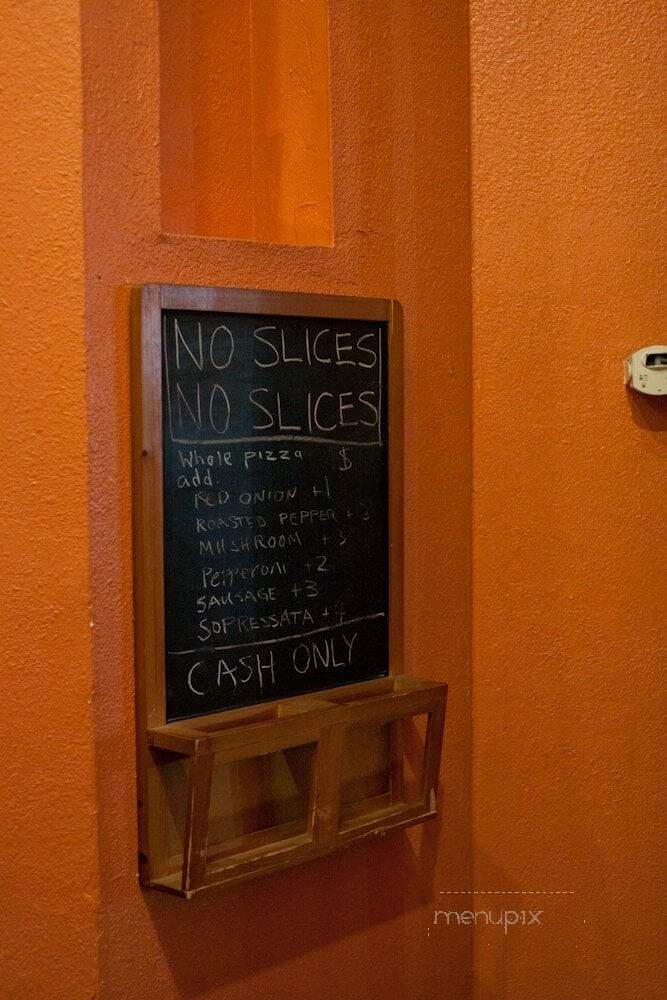 NO SLICES
NO SLICES
Whole pizza $
add.
RED ONION +1
ROASTED PEPPER + 3
MUSHROOM + 3
Pepperoni +2
SAUSAGE +3
SOPRESSATA +4
CASH ONLY
menupix